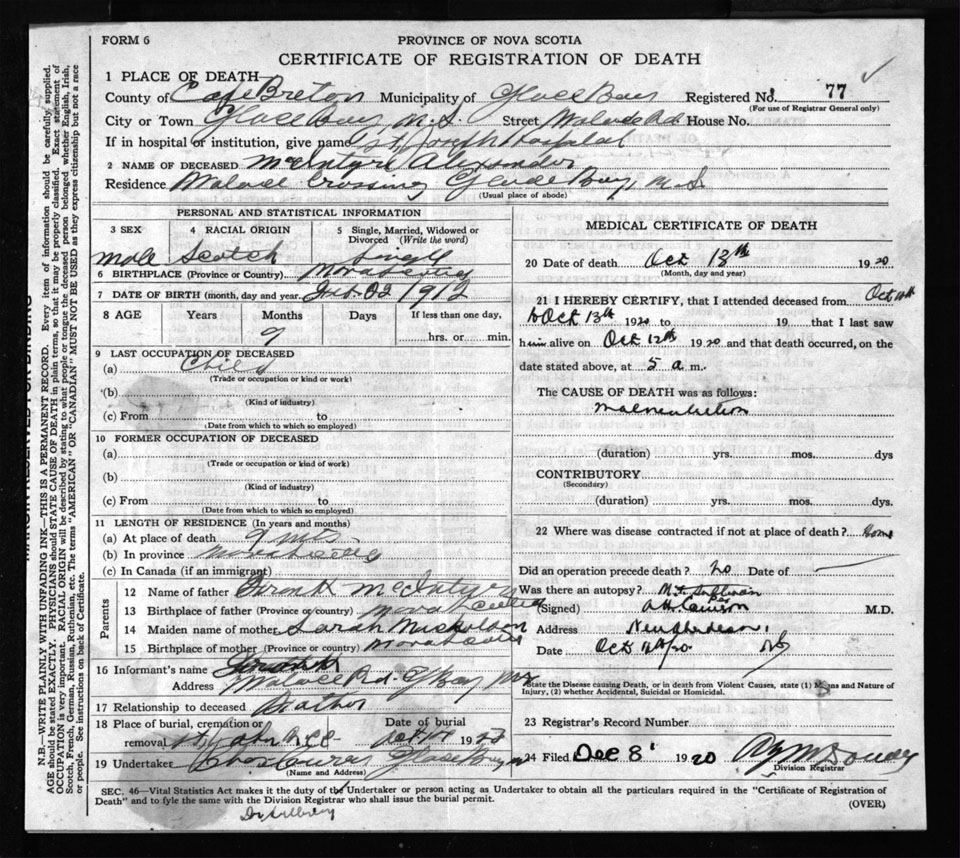 FORM 6
PROVINCE OF NOVA SCOTIA
CERTIFICATE OF REGISTRATION OF DEATH
1 PLACE OF DEATH—
County of Cape Breton Municipality of Glace Bay Registered No. 77
(For use of Registrar General only)
City or Town Glace Bay, N.S. Street House No.
If in hospital or institution, give name St. Joseph Hospital
2 NAME OF DECEASED McIntyre Alexander
Residence Crossing Glace Bay, N.S.
(Usual place of abode)
PERSONAL AND STATISTICAL INFORMATION
3 SEX 4 RACIAL ORIGIN 5 Single, Married, Widowed or Divorced (Write the word)
Male Scotch Single
6 BIRTHPLACE (Province or Country) Nova Scotia
7 DATE OF BIRTH (month, day and year) 1912
8 AGE Years Months Days If less than one day,
9 hrs. or min.
9 LAST OCCUPATION OF DECEASED
(a) Child
(Trade or occupation or kind or work)
(b)
(Kind of industry)
(c) From to
(Date from which to which so employed)
10 FORMER OCCUPATION OF DECEASED
(a)
(Trade or occupation or kind of work)
(b)
(Kind of industry)
(c) From to
(Date from which to which so employed)
11 LENGTH OF RESIDENCE (In years and months)
(a) At place of death 9 mts
(b) In province
(c) In Canada (if an immigrant)
Parents
12 Name of father McIntyre
13 Birthplace of father (Province or country) Nova Scotia
14 Maiden name of mother Sarah
15 Birthplace of mother (Province or country) Nova Scotia
16 Informant's name
Address Rd. G Bay NS
17 Relationship to deceased Father
18 Place of burial, cremation or removal Date of burial
Oct 1920
19 Undertaker Glace Bay
(Name and Address)
MEDICAL CERTIFICATE OF DEATH
20 Date of death Oct 13th 1920
(Month, day and year)
21 I HEREBY CERTIFY, that I attended deceased from Oct
to Oct 13th 1920 to 19 that I last saw
him alive on Oct 12th 1920 and that death occurred, on the
date stated above, at 5 a m.
The CAUSE OF DEATH was as follows:
Malnutrition
(duration) yrs. mos. dys
CONTRIBUTORY
(Secondary)
(duration) yrs. mos. dys.
22 Where was disease contracted if not at place of death? Home
Did an operation precede death? no Date of
Was there an autopsy?
(Signed) M.D.
Address New Aberdeen,
Date Oct NS
State the Disease causing Death, or in death from Violent Causes, state (1) Means and Nature of
Injury, (2) whether Accidental, Suicidal or Homicidal.
23 Registrar's Record Number
24 Filed Dec 8 1920
Division Registrar
SEC. 46—Vital Statistics Act makes it the duty of the Undertaker or person acting as Undertaker to obtain all the particulars required in the "Certificate of Registration of
Death" and to fyle the same with the Division Registrar who shall issue the burial permit.
(OVER)
N.B.—WRITE PLAINLY WITH UNFADING INK—THIS IS A PERMANENT RECORD. Every item of information should be carefully supplied.
AGE should be stated EXACTLY. PHYSICIANS should STATE CAUSE OF DEATH in plain terms, so that it may be properly classified. Exact statement of
OCCUPATION is very important. RACIAL ORIGIN will be described by stating to what people or tongue the deceased person belonged whether English, Irish,
Scotch, French, German, Russian, Ruthenian, etc. The terms "AMERICAN" OR "CANADIAN" MUST NOT BE USED as they express citizenship but not a race
or people. See instructions on back of Certificate.